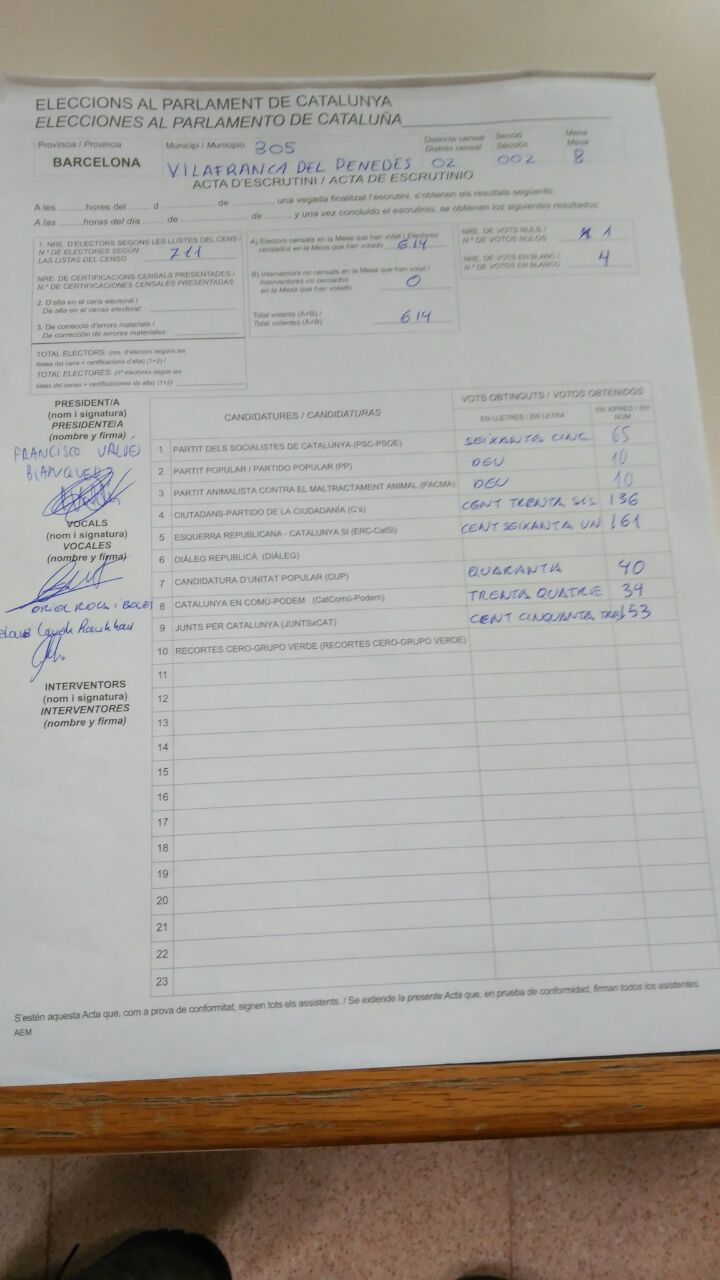 ELECCIONS AL PARLAMENT DE CATALUNYA
ELECCIONES AL PARLAMENTO DE CATALUÑA
Província / Provincia Municipi / Municipio 305 Districte censal Secció Mesa
Distrito censal Sección Mesa
BARCELONA VILAFRANCA DEL PENEDÈS 02 002 B
ACTA D'ESCRUTINI / ACTA DE ESCRUTINIO
A les ........hores del ...... d .................. de .............., una vegada finalitzat l'escrutini, s'obtenen els resultats següents:
A las ........horas del día ...... de .................. de ........ y una vez concluido el escrutinio, se obtienen los siguientes resultados:
1. NRE. D'ELECTORS SEGONS LES LLISTES DEL CENS /
N.º DE ELECTORES SEGÚN
LAS LISTAS DEL CENSO 711
NRE. DE CERTIFICACIONS CENSALS PRESENTADES /
N.º DE CERTIFICACIONES CENSALES PRESENTADAS
2. D'alta en el cens electoral /
De alta en el censo electoral:
3. De correcció d'errors materials /
De corrección de errores materiales:
TOTAL ELECTORS: (nre. d'electors segons les
llistes del cens + certificacions d'alta) (1+2) /
TOTAL ELECTORES: (nº electores según las
listas del censo + certificaciones de alta) (1+2)
A) Electors censats en la Mesa que han votat / Electores
censados en la Mesa que han votado 614
B) Interventors no censats en la Mesa que han votat /
Interventores no censados
en la Mesa que han votado 0
Total votants (A+B) /
Total votantes (A+B) 614
NRE. DE VOTS NULS /
N.º DE VOTOS NULOS 1
NRE. DE VOTS EN BLANC /
N.º DE VOTOS EN BLANCO 4
PRESIDENT/A
(nom i signatura)
PRESIDENTE/A
(nombre y firma)
FRANCISCO
VOCALS
(nom i signatura)
VOCALES
(nombre y firma)
ORIOL ROCA i
INTERVENTORS
(nom i signatura)
INTERVENTORES
(nombre y firma)
CANDIDATURES / CANDIDATURAS VOTS OBTINGUTS / VOTOS OBTENIDOS
EN LLETRES / EN LETRA EN XIFRES / EN NÚM.
1 PARTIT DELS SOCIALISTES DE CATALUNYA (PSC-PSOE) SEIXANTA CINC 65
2 PARTIT POPULAR / PARTIDO POPULAR (PP) DEU 10
3 PARTIT ANIMALISTA CONTRA EL MALTRACTAMENT ANIMAL (PACMA) DEU 10
4 CIUTADANS-PARTIDO DE LA CIUDADANÍA (C's) CENT TRENTA SIS 136
5 ESQUERRA REPUBLICANA - CATALUNYA SÍ (ERC-CatSí) CENT SEIXANTA UN 161
6 DIÀLEG REPUBLICÀ (DIÀLEG)
7 CANDIDATURA D'UNITAT POPULAR (CUP) QUARANTA 40
8 CATALUNYA EN COMÚ-PODEM (CatComú-Podem) TRENTA QUATRE 34
9 JUNTS PER CATALUNYA (JUNTSxCAT) CENT CINQUANTA TRES 153
10 RECORTES CERO-GRUPO VERDE (RECORTES CERO-GRUPO VERDE)
11
12
13
14
15
16
17
18
19
20
21
22
23
S'estén aquesta Acta que, com a prova de conformitat, signen tots els assistents. / Se extiende la presente Acta que, en prueba de conformidad, firman todos los asistentes.
AEM